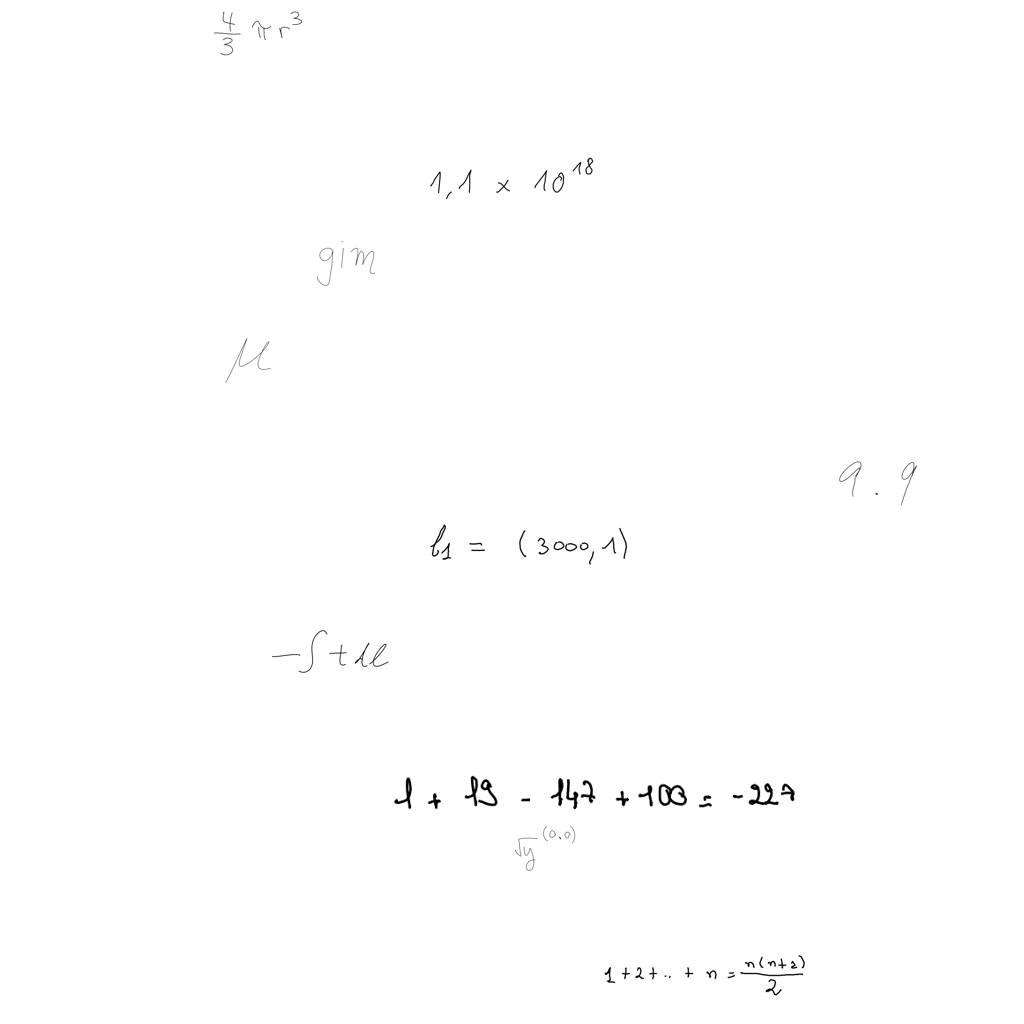 4/3 πr³
1,1 × 10¹⁸
gim
μ
9.9
b₁ = (3000,1)
1 + 19 - 147 + 100 = -227
√y^(0,0)
1+2+..+ n = n(n+2)/2